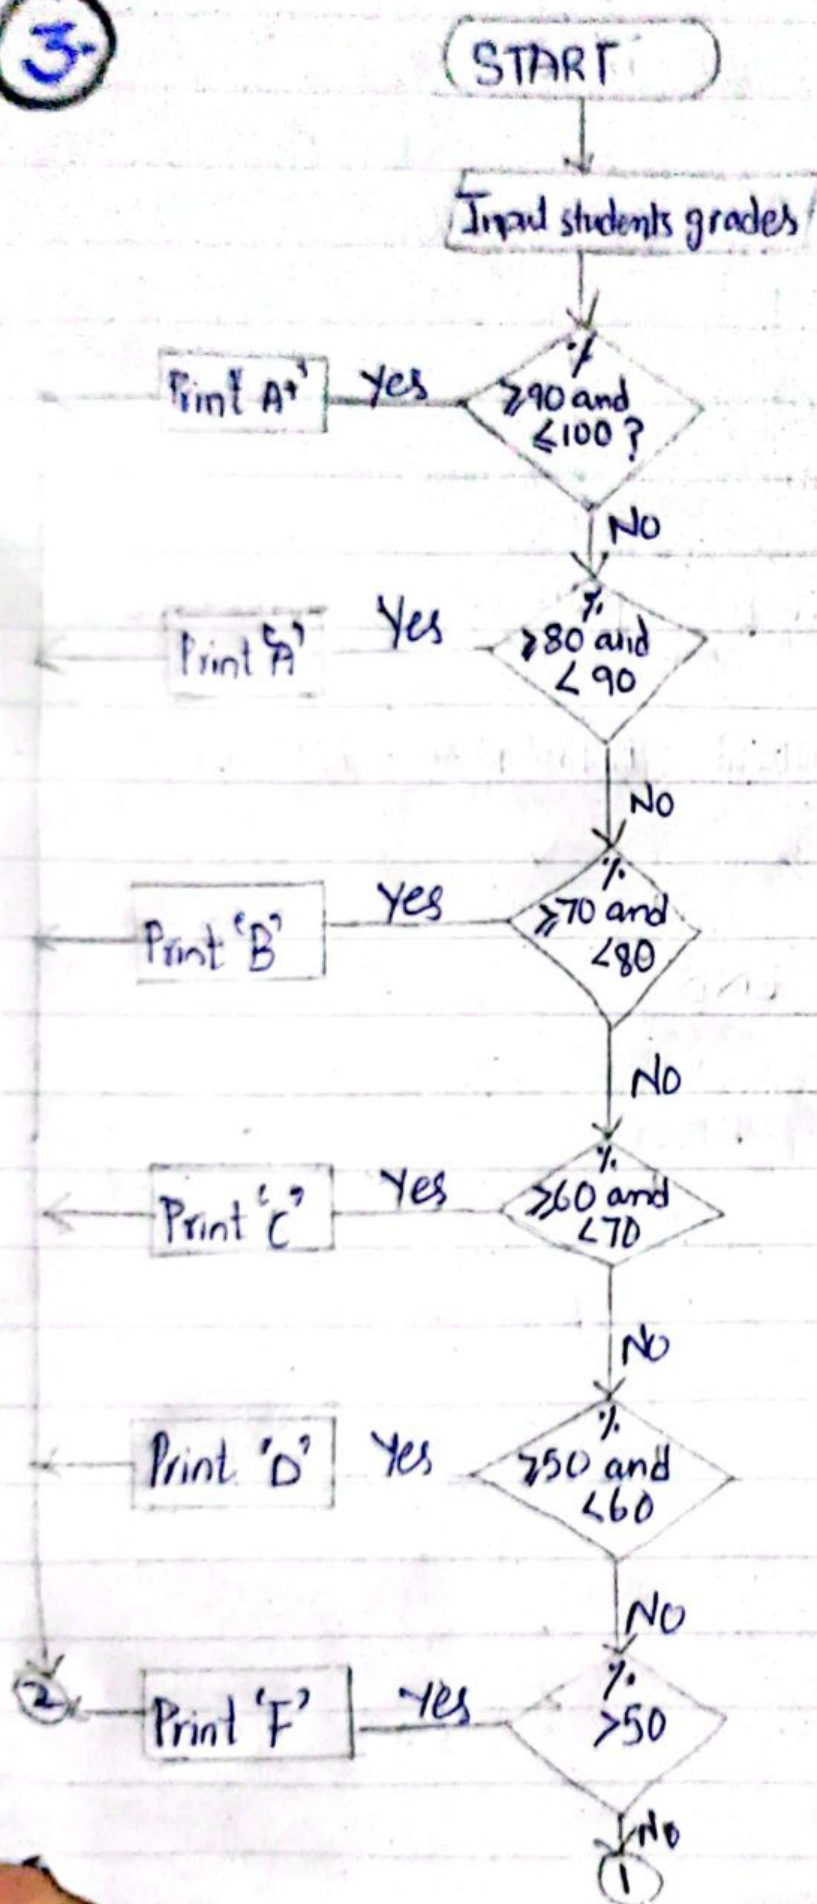 3.
START
Input students grades
%
≥90 and
≤100?
Yes
Print 'A+'
NO
%
≥80 and
<90
Yes
Print 'A'
NO
%
≥70 and
<80
Yes
Print 'B'
NO
%
≥60 and
<70
Yes
Print 'C'
NO
%
≥50 and
<60
Yes
Print 'D'
NO
%
>50
Yes
Print 'F'
2
No
1